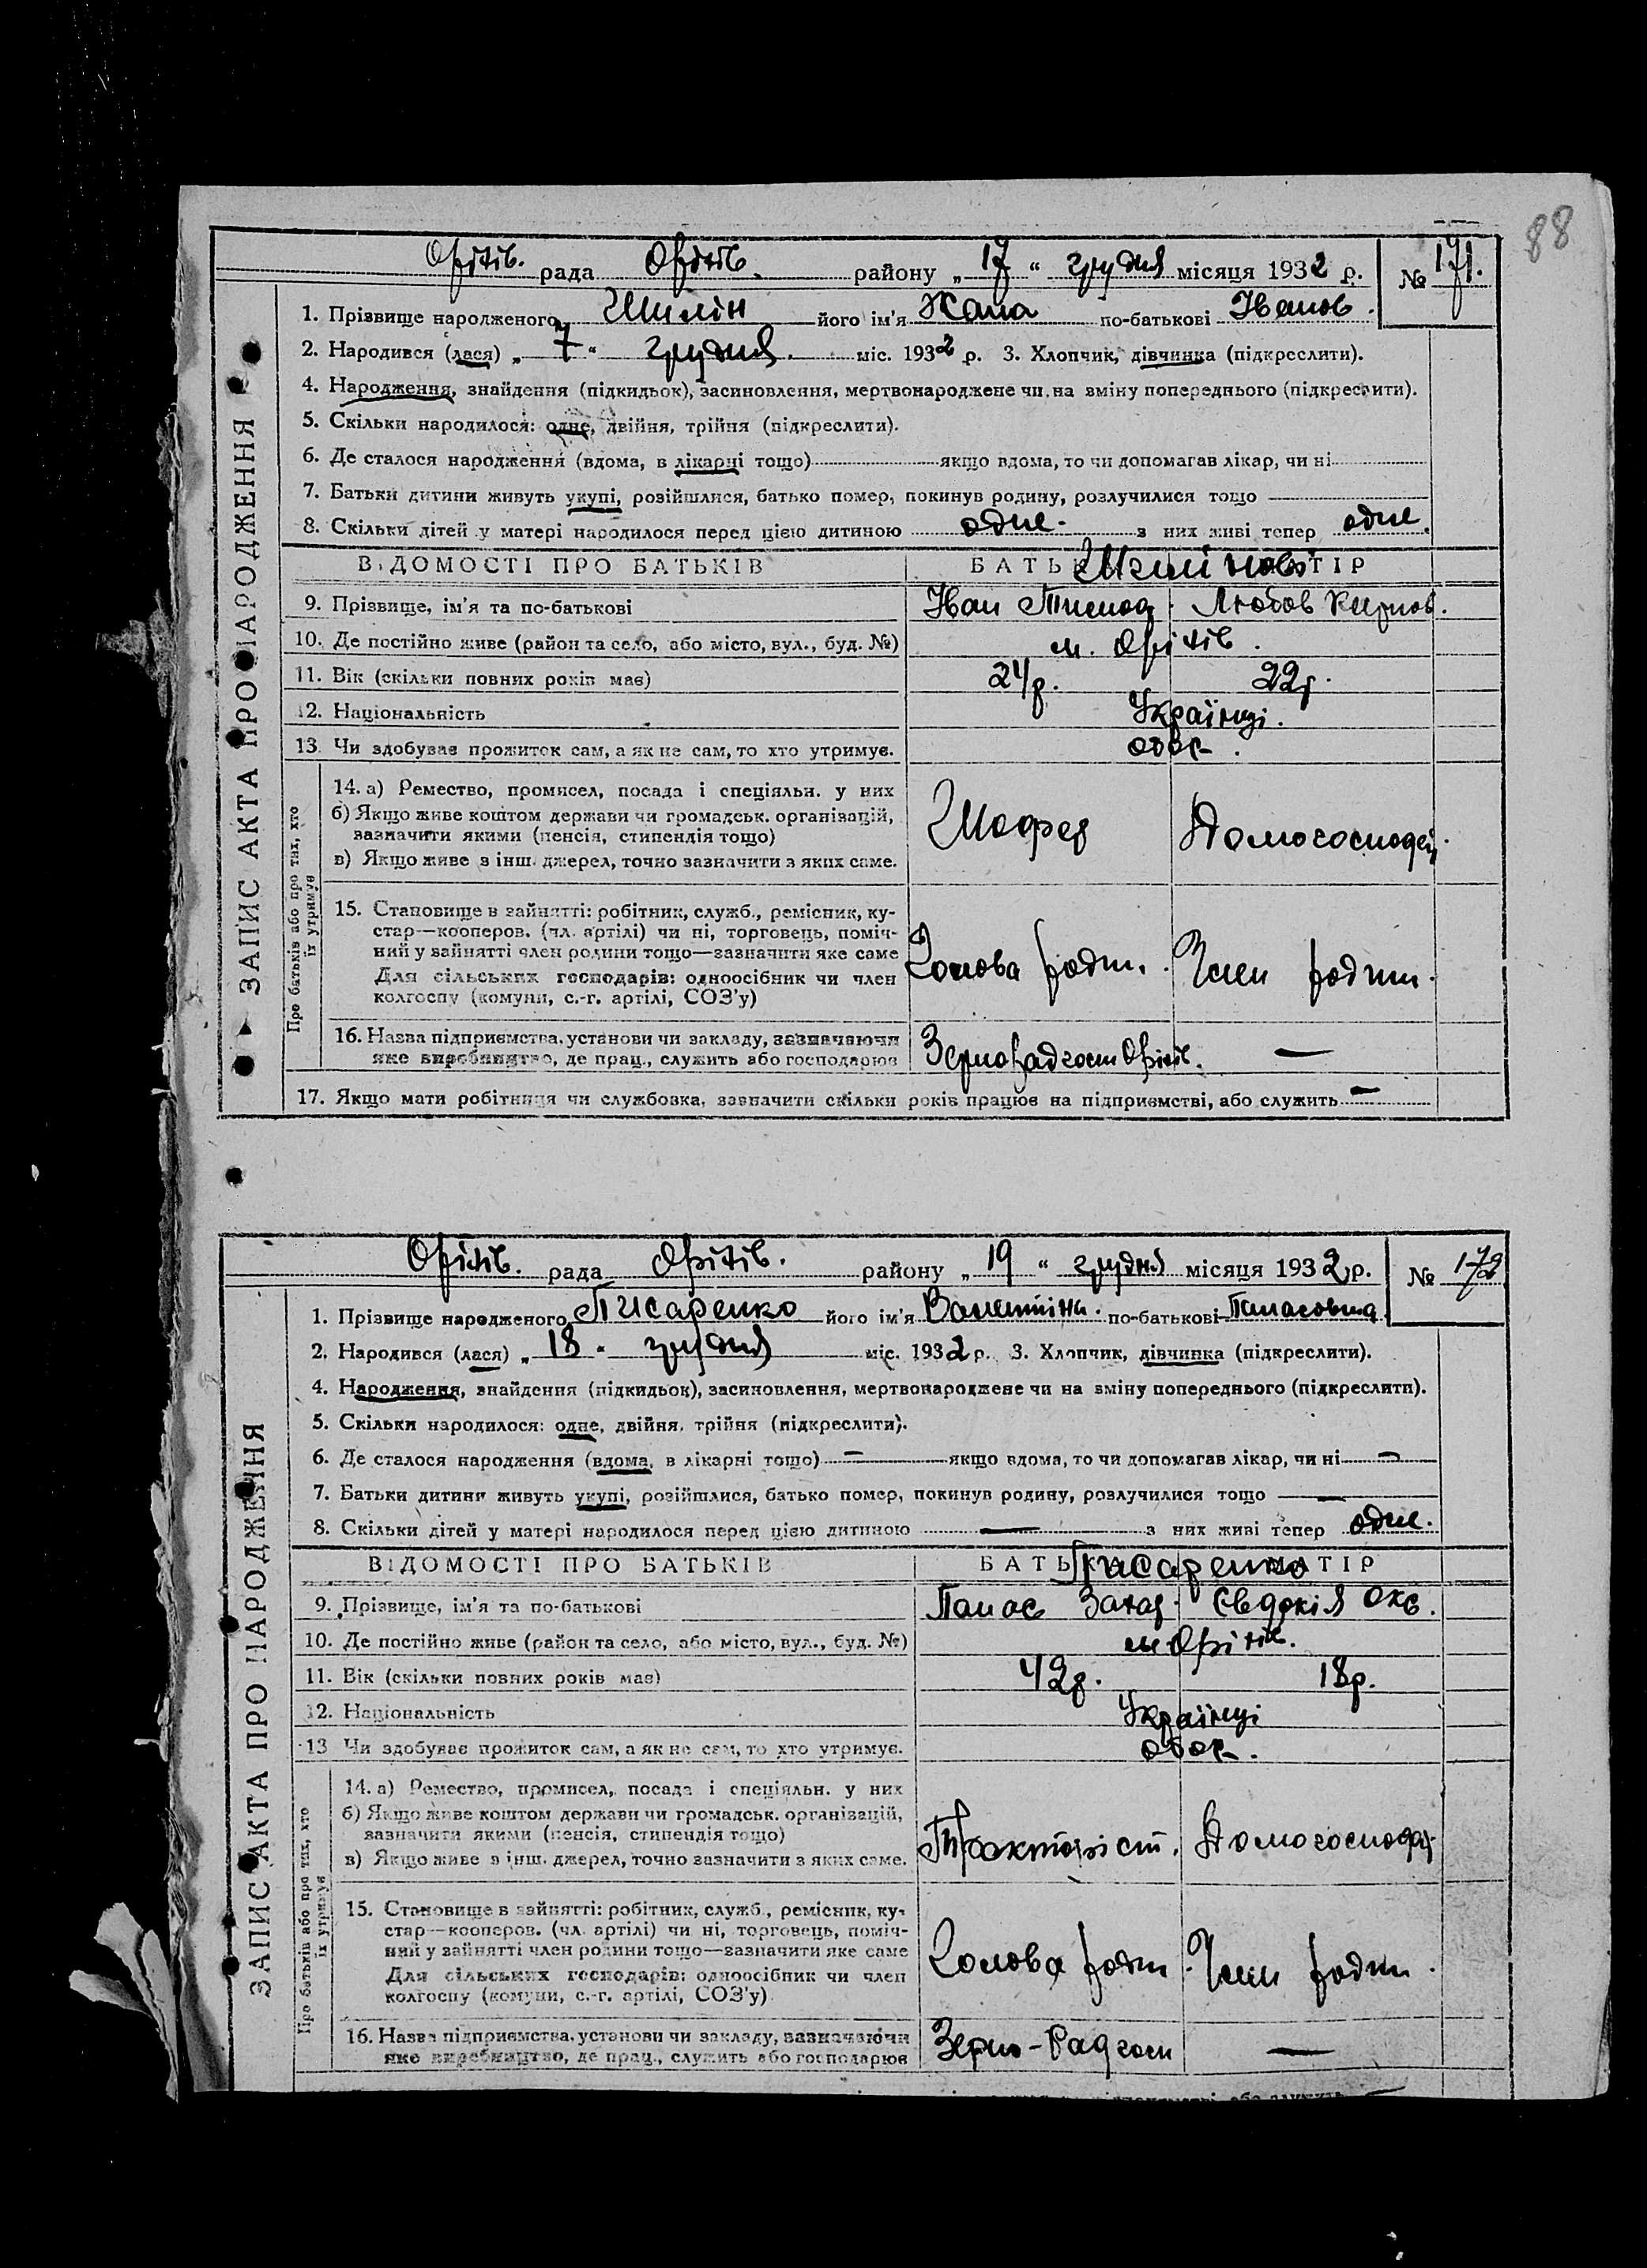 88
Оріхів. рада Оріхів. району „ 17 “ грудня місяця 1932 р. № 171.
1. Прізвище народженого Шилін його ім'я Жана по-батькові Іванов.
2. Народився (лася) „ 7 “ грудня. міс. 1932 р. 3. Хлопчик, дівчинка (підкреслити).
4. Народження, знайдення (підкидьок), засиновлення, мертвонароджене чи на зміну попереднього (підкреслити).
5. Скільки народилося: одне, двійня, трійня (підкреслити).
6. Де сталося народження (вдома, в лікарні тощо) якщо вдома, то чи допомагав лікар, чи ні
7. Батьки дитини живуть укупі, розійшлися, батько помер, покинув родину, розлучилися тощо
8. Скільки дітей у матері народилося перед цією дитиною одне. з них живі тепер одне.
ВІДОМОСТІ ПРО БАТЬКІВ БАТЬКО МАТІР
9. Прізвище, ім'я та по-батькові Іван Тимоф. Любов
10. Де постійно живе (район та село, або місто, вул., буд. №) м. Оріхів.
11. Вік (скільки повних років має) 24р. 22р.
12. Національність Українці.
13. Чи здобуває прожиток сам, а як не сам, то хто утримує.
14. а) Ремество, промисел, посада і спеціяльн. у них
б) Якщо живе коштом держави чи громадськ. організацій,
зазначити якими (пенсія, стипендія тощо)
в) Якщо живе з інш. джерел, точно зазначити з яких саме.
Шофер Домогосподар.
15. Становище в зайнятті: робітник, служб., ремісник, ку-
стар—кооперов. (чл. артілі) чи ні, торговець, поміч-
ний у зайнятті член родини тощо—зазначити яке саме
Для сільських господарів: одноосібник чи член
колгоспу (комуни, с.-г. артілі, СОЗ'у)
Голова родин. Член родин.
16. Назва підприємства, установи чи закладу, зазначаючи
яке виробництво, де прац., служить або господарює
Зернорадгосп Оріхів. —
17. Якщо мати робітниця чи службовка, зазначити скільки років працює на підприємстві, або служить —
ЗАПИС АКТА ПРО НАРОДЖЕННЯ
Про батьків або про тих, хто
їх утримує
Оріхів. рада Оріхів. району „ 19 “ грудня місяця 1932 р. № 172
1. Прізвище народженого Писаренко його ім'я Валентіна. по-батькові Панасовна
2. Народився (лася) „ 18 “ грудня міс. 1932 р. 3. Хлопчик, дівчинка (підкреслити).
4. Народження, знайдення (підкидьок), засиновлення, мертвонароджене чи на зміну попереднього (підкреслити).
5. Скільки народилося: одне, двійня, трійня (підкреслити).
6. Де сталося народження (вдома, в лікарні тощо) — якщо вдома, то чи допомагав лікар, чи ні —
7. Батьки дитини живуть укупі, розійшлися, батько помер, покинув родину, розлучилися тощо —
8. Скільки дітей у матері народилося перед цією дитиною — з них живі тепер одне.
ВІДОМОСТІ ПРО БАТЬКІВ БАТЬКО МАТІР
Писаренко
9. Прізвище, ім'я та по-батькові Панас Захар. Євдокія
10. Де постійно живе (район та село, або місто, вул., буд. №) м. Оріхів.
11. Вік (скільки повних років має) 42р. 18р.
12. Національність Українці
13 Чи здобуває прожиток сам, а як не сам, то хто утримує.
14. а) Ремество, промисел, посада і спеціяльн. у них
б) Якщо живе коштом держави чи громадськ. організацій,
зазначити якими (пенсія, стипендія тощо)
в) Якщо живе з інш. джерел, точно зазначити з яких саме.
Тракторіст. Домогосподар.
15. Становище в зайнятті: робітник, служб., ремісник, ку-
стар—кооперов. (чл. артілі) чи ні, торговець, поміч-
ний у зайнятті член родини тощо—зазначити яке саме
Для сільських господарів: одноосібник чи член
колгоспу (комуни, с.-г. артілі, СОЗ'у)
Голова родин. Член родин.
16. Назва підприємства, установи чи закладу, зазначаючи
яке виробництво, де прац., служить або господарює
Зерно-Радгосп —
ЗАПИС АКТА ПРО НАРОДЖЕННЯ
Про батьків або про тих, хто
їх утримує